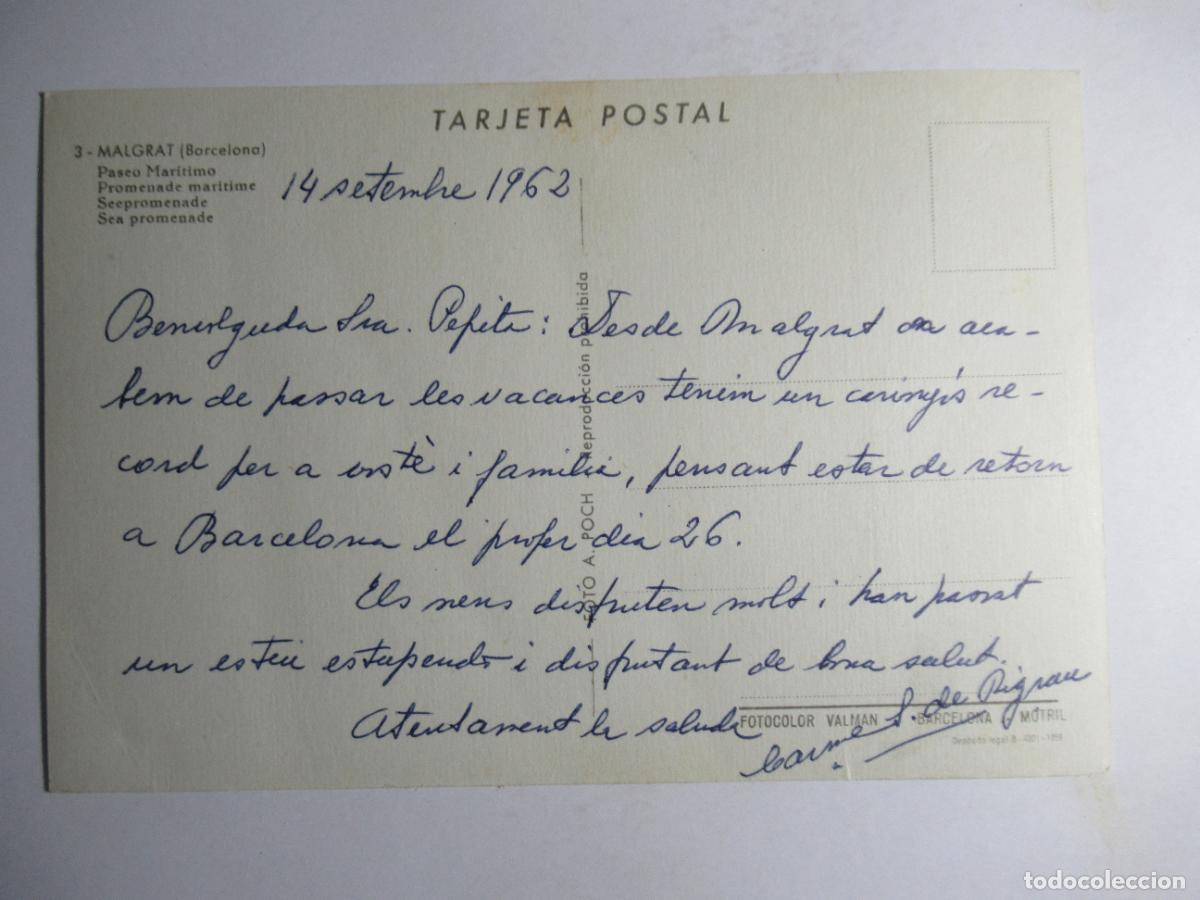 TARJETA POSTAL
3 - MALGRAT (Barcelona)
Paseo Marítimo
Promenade maritime
Seepromenade
Sea promenade
14 setembre 1962
Benvolguda Sra. Pepita: Desde Malgrat on aca-
bem de passar les vacances tenim un carinyós re-
cord per a vostè i familia, pensant estar de retorn
a Barcelona el proper dia 26.
Els nens disfruten molt i han passat
un estiu estupendo i disfrutant de bona salut.
Atentament la saluda
Carme S. de Rigrau
FOTO A. POCH Reproducción prohibida
FOTOCOLOR VALMAN - BARCELONA - MOTRIL
Depósito legal B.
todocoleccion